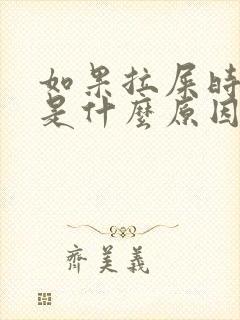 如果拉屎时
是什麼原因
齊美義